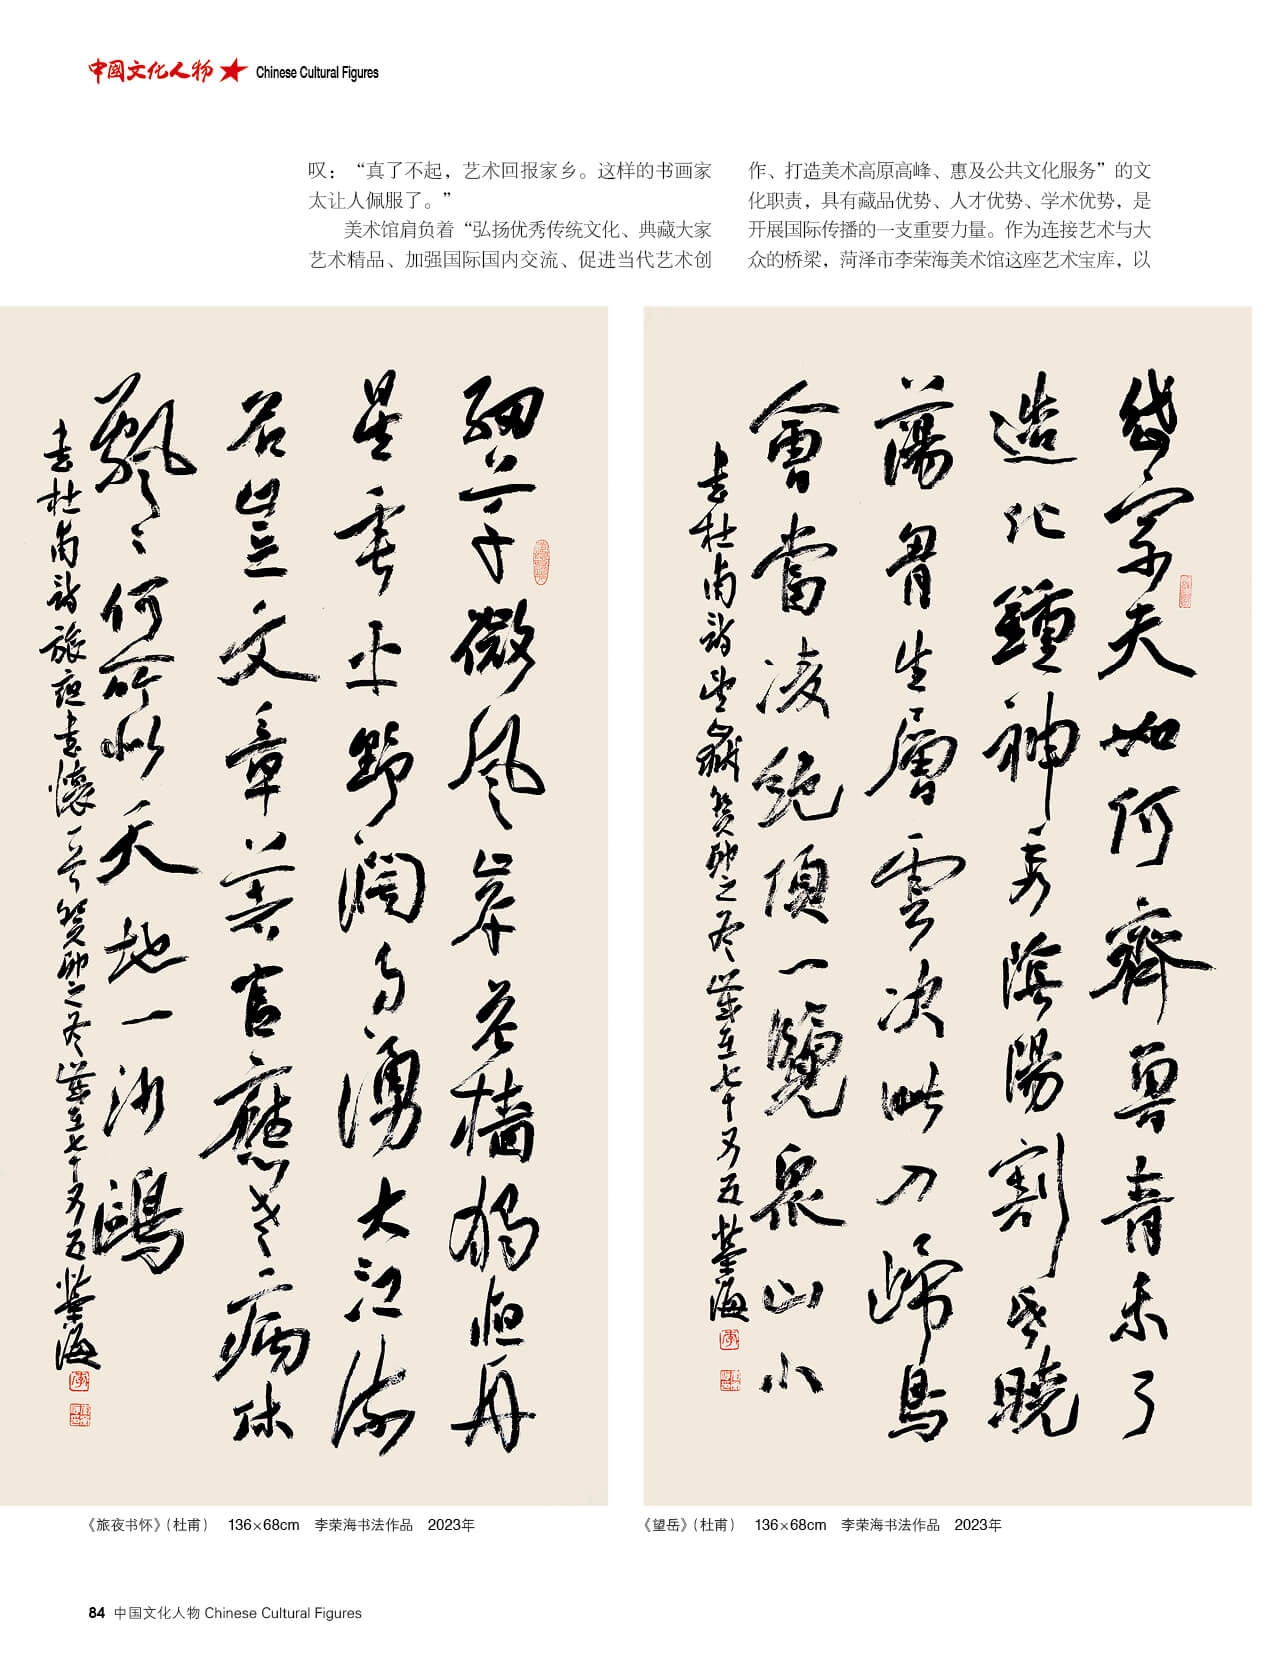 中國文化人物 Chinese Cultural Figures
叹：“真了不起，艺术回报家乡。这样的书画家
太让人佩服了。”
美术馆肩负着“弘扬优秀传统文化、典藏大家
艺术精品、加强国际国内交流、促进当代艺术创
作、打造美术高原高峰、惠及公共文化服务”的文
化职责，具有藏品优势、人才优势、学术优势，是
开展国际传播的一支重要力量。作为连接艺术与大
众的桥梁，菏泽市李荣海美术馆这座艺术宝库，以
細草微風岸危檣獨夜舟
星垂平野闊月湧大江流
名豈文章著官應老病休
飄〻何所似天地一沙鷗
書杜甫詩旅夜書懷一首癸卯之冬歲在七十又五榮海
《旅夜书怀》（杜甫） 136×68cm 李荣海书法作品 2023年
岱宗夫如何齊魯青未了
造化鍾神秀陰陽割昏曉
蕩胷生層雲决眦入歸鳥
會當凌絶頂一覽衆山小
書杜甫詩望嶽癸卯之冬歲在七十又五榮海
《望岳》（杜甫） 136×68cm 李荣海书法作品 2023年
84 中国文化人物 Chinese Cultural Figures